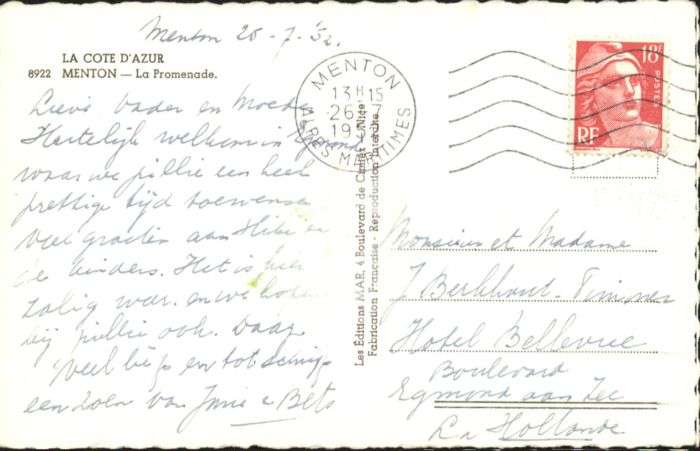 Menton 26-7-'52.
LA COTE D'AZUR
8922 MENTON — La Promenade.
Lieve Vader en Moeder
Hartelijk welkom in
waar we jullie een heel
prettige tijd toewensen
veel groeten aan
de kinders. Het is hier
zalig war. en we hopen
bij jullie ook. Daag
veel liefs en tot
een zoen van Janie e Bets
MENTON
13H15
26-7
19
ALPES MARITIMES
18F
POSTES
RF
Les Éditions MAR, 4 Boulevard de Cimiez - Nice
Fabrication Française - Reproduction Interdite.
Monsieur et Madame
J Berkhout-Timmer
Hotel Bellevue
Boulevard
Egmond aan Zee
La Hollande